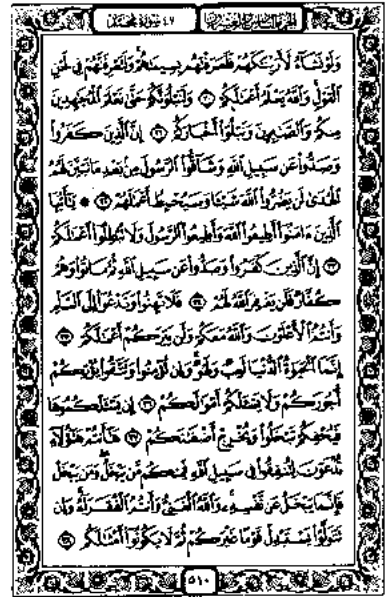 الجزء السادس والعشرون ٤٧ سورة محمد
وَلَوْ نَشَاءُ لَأَرَيْنَاكَهُمْ فَلَعَرَفْتَهُم بِسِيمَاهُمْ وَلَتَعْرِفَنَّهُمْ فِي لَحْنِ
الْقَوْلِ وَاللَّهُ يَعْلَمُ أَعْمَالَكُمْ ٣٠ وَلَنَبْلُوَنَّكُمْ حَتَّى نَعْلَمَ الْمُجَاهِدِينَ
مِنكُمْ وَالصَّابِرِينَ وَنَبْلُوَا أَخْبَارَكُمْ ٣١ إِنَّ الَّذِينَ كَفَرُوا
وَصَدُّوا عَن سَبِيلِ اللَّهِ وَشَاقُّوا الرَّسُولَ مِن بَعْدِ مَا تَبَيَّنَ لَهُمُ
الْهُدَى لَن يَضُرُّوا اللَّهَ شَيْئًا وَسَيُحْبِطُ أَعْمَالَهُمْ ٣٢ ۞ يَا أَيُّهَا
الَّذِينَ ءَامَنُوا أَطِيعُوا اللَّهَ وَأَطِيعُوا الرَّسُولَ وَلَا تُبْطِلُوا أَعْمَالَكُمْ
٣٣ إِنَّ الَّذِينَ كَفَرُوا وَصَدُّوا عَن سَبِيلِ اللَّهِ ثُمَّ مَاتُوا وَهُمْ
كُفَّارٌ فَلَن يَغْفِرَ اللَّهُ لَهُمْ ٣٤ فَلَا تَهِنُوا وَتَدْعُوا إِلَى السَّلْمِ
وَأَنتُمُ الْأَعْلَوْنَ وَاللَّهُ مَعَكُمْ وَلَن يَتِرَكُمْ أَعْمَالَكُمْ ٣٥
إِنَّمَا الْحَيَوٰةُ الدُّنْيَا لَعِبٌ وَلَهْوٌ وَإِن تُؤْمِنُوا وَتَتَّقُوا يُؤْتِكُمْ
أُجُورَكُمْ وَلَا يَسْـَٔلْكُمْ أَمْوَالَكُمْ ٣٦ إِن يَسْـَٔلْكُمُوهَا
فَيُحْفِكُمْ تَبْخَلُوا وَيُخْرِجْ أَضْغَانَكُمْ ٣٧ هَاأَنتُمْ هَٰؤُلَاءِ
تُدْعَوْنَ لِتُنفِقُوا فِي سَبِيلِ اللَّهِ فَمِنكُم مَّن يَبْخَلُ وَمَن يَبْخَلْ
فَإِنَّمَا يَبْخَلُ عَن نَّفْسِهِ وَاللَّهُ الْغَنِيُّ وَأَنتُمُ الْفُقَرَاءُ وَإِن
تَتَوَلَّوْا يَسْتَبْدِلْ قَوْمًا غَيْرَكُمْ ثُمَّ لَا يَكُونُوا أَمْثَالَكُم ٣٨
٥١٠